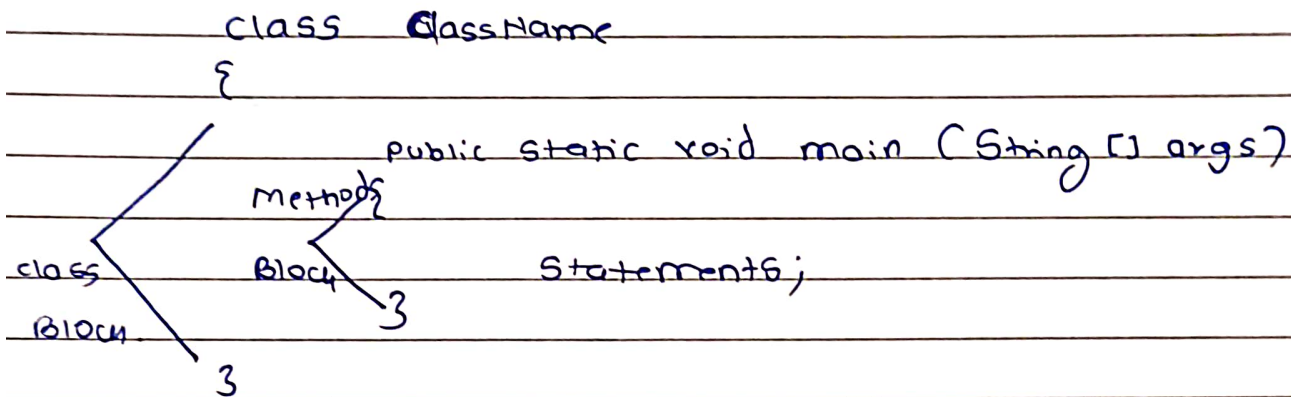 class ClassName
{
public static void main (String [] args)
Method {
class Block Statements;
}
Block
}